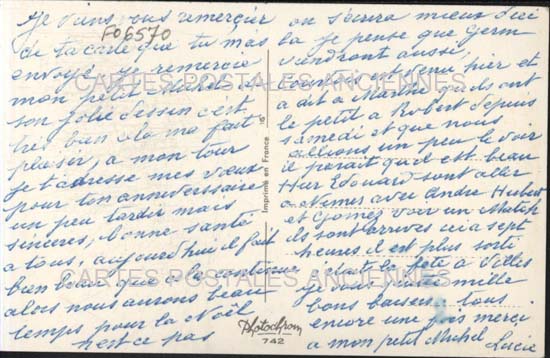 Je viens vous remercier
de ta carte que tu m'as
envoyé, je remercie
mon petit Michel de
son joli dessin c'est
très bien cela ma fait
plaisir, a mon tour
je t'adresse mes vœux
pour ton anniversaire
un peu tardir mais
sincères, bonne santé
a tous, aujourd'hui il fait
bien beau que cele continue
alors nous aurons beau
temps pour la Noël
n'est ce pas
on sèra mieux d'ici
la je pense que Germ
viendront aussi
venu hier et
a dit a Marthe qu'ils ont
le petit a Robert depuis
samedi et que nous
allions un peu le voir
il parait qu'il est beau
Hier Edouard sont aller
a Nimes avec Andre Hubert
et Gomes voir un Match
ils sont arrives ici a sept
heures il est plus sorti
c'est la fête a
je vous mille
bons baisers a tous
encore une fois merci
a mon petit Michel Lucie
FO6570
CARTES POSTALES ANCIENNES
CARTES POSTALES ANCIENNES
Imprimé en France
Photochrom
742